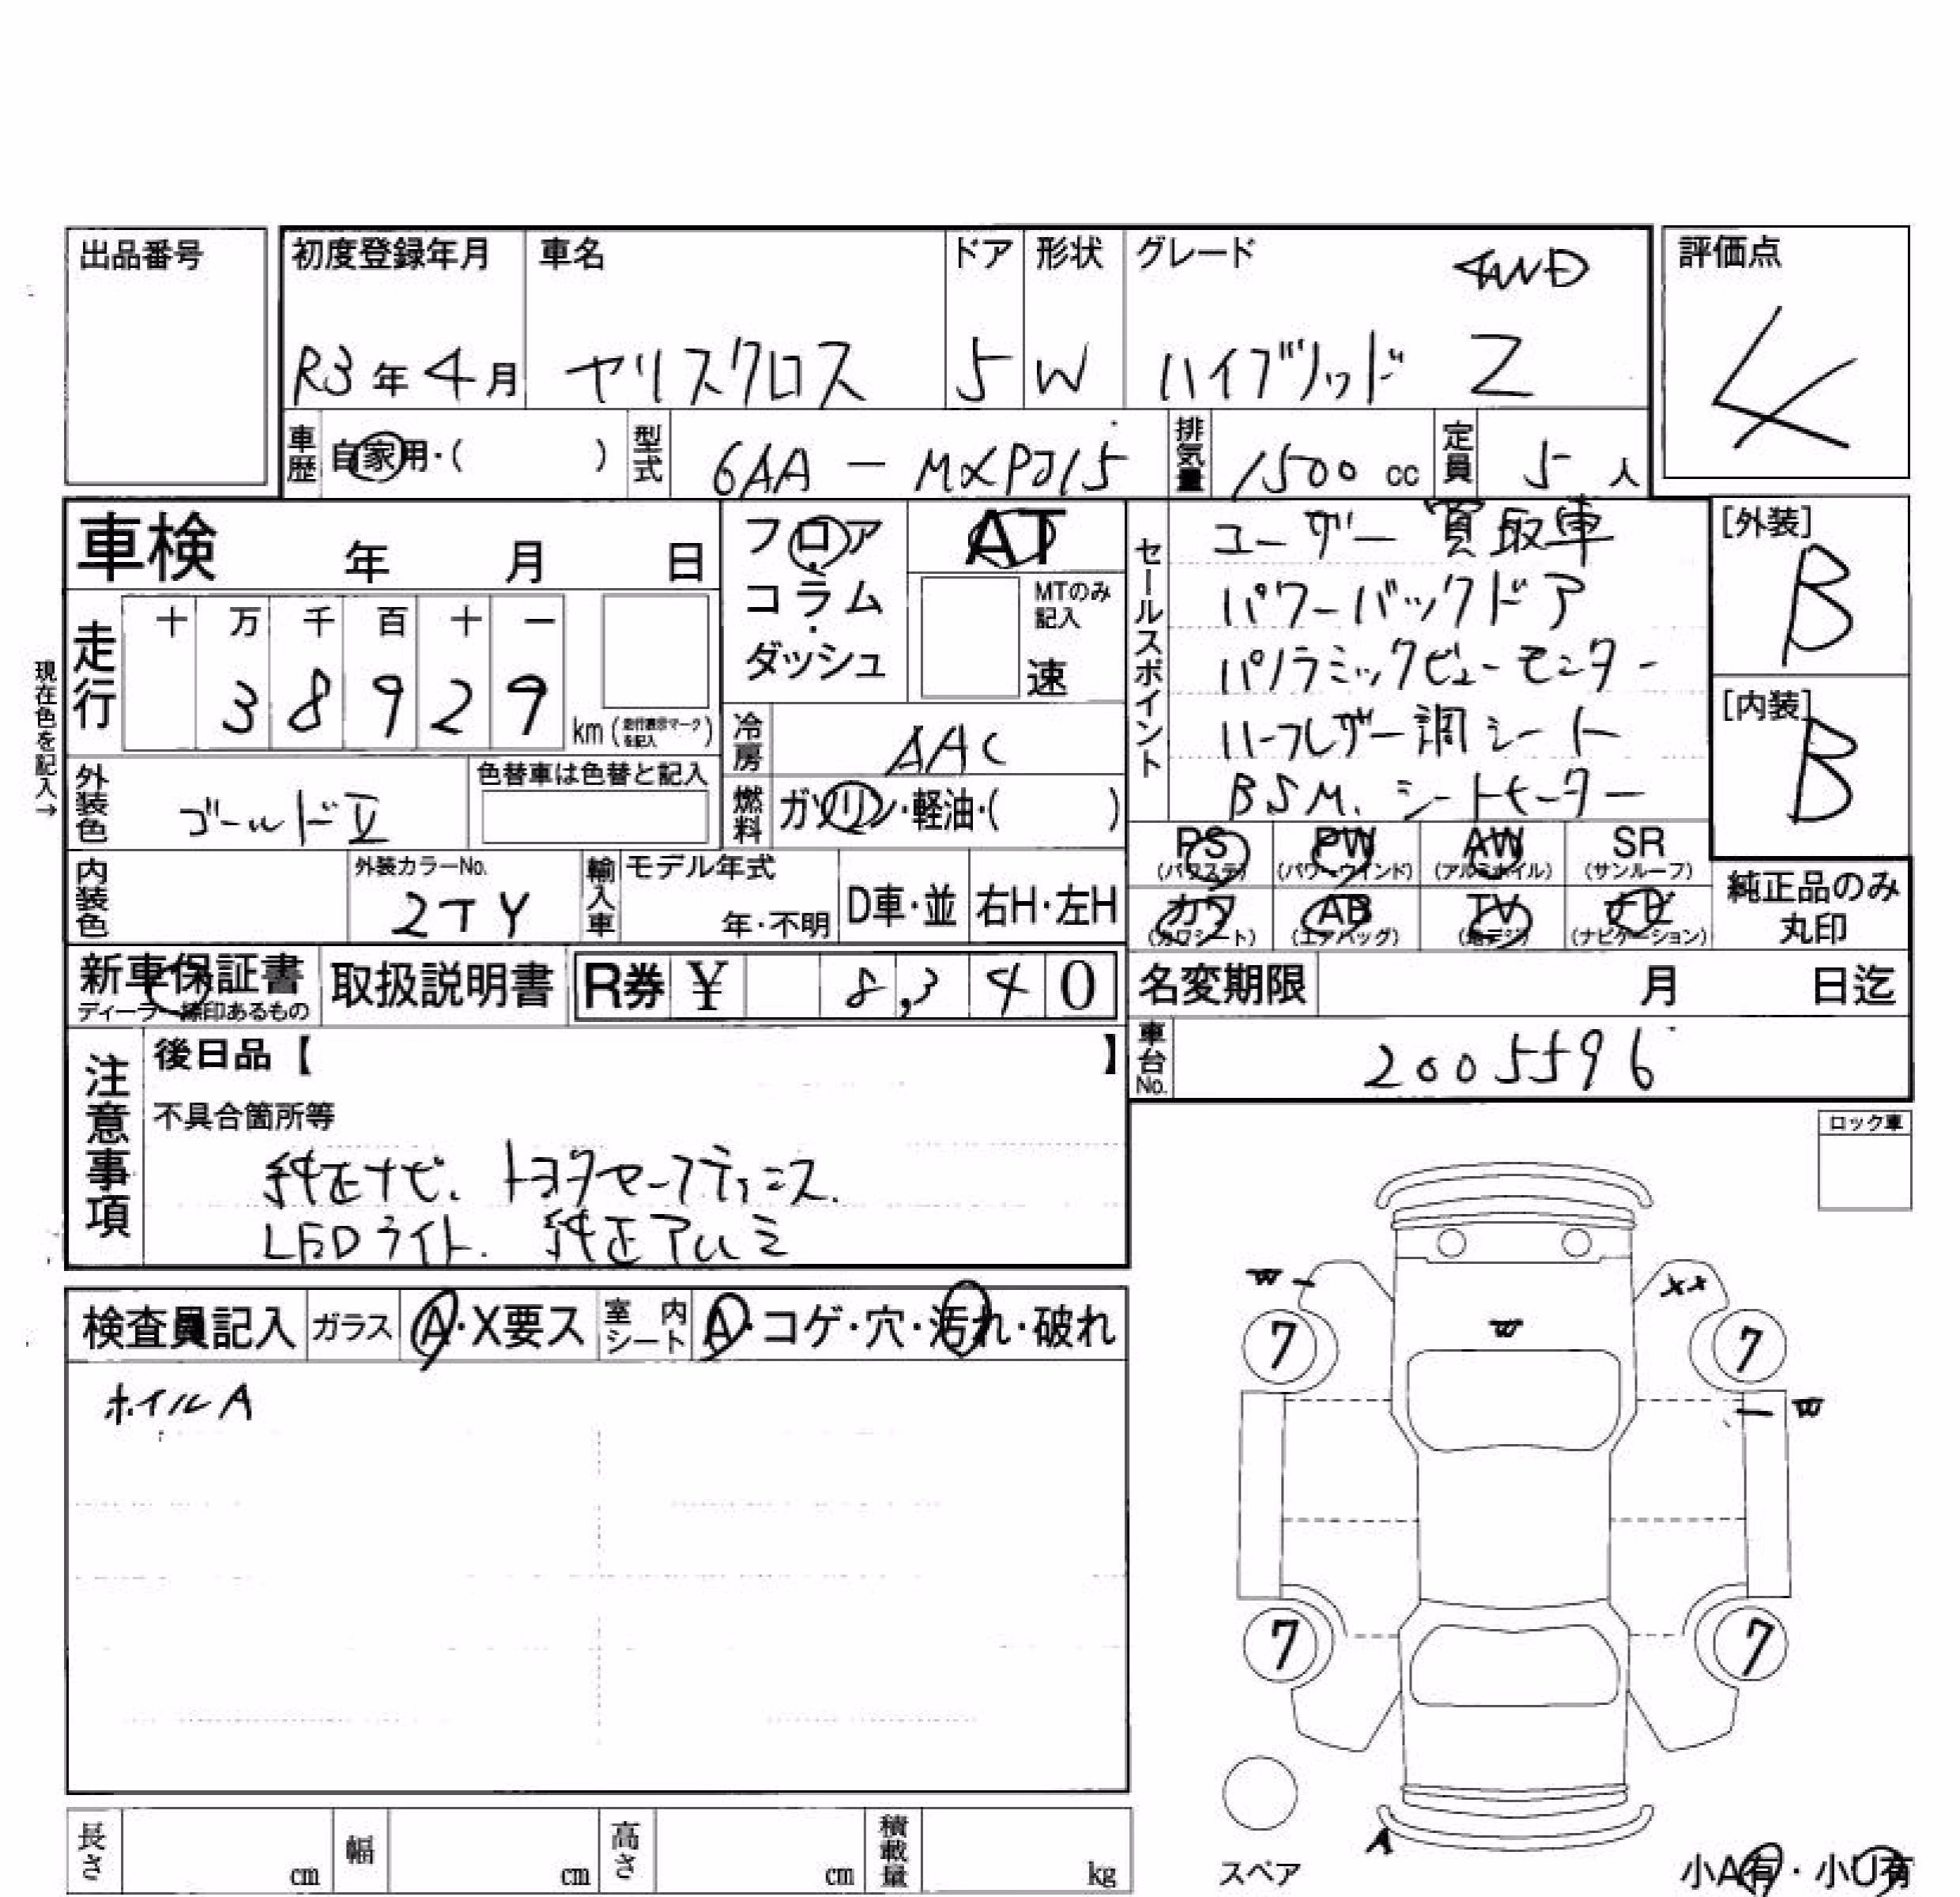 出品番号
初度登録年月 車名 ドア 形状 グレード 4WD 評価点
R3年4月 ヤリスクロス 5 W ハイブリッド Z 4
車歴 自家用・( ) 型式 6AA-MXPJ15 排気量 1500cc 定員 5人
車検 年 月 日
フロア・コラム・ダッシュ
AT
MTのみ記入
速
セールスポイント
ユーザー買取車
パワーバックドア
パノラミックビューモニター
ハーフレザー調シート
BSM. シートヒーター
[外装] B
[内装] B
現在色を記入→
走行 十 万 千 百 十 一
3 8 9 2 9 km (走行表示マークを記入)
冷房 AAC
外装色 ゴールド 色替車は色替と記入
燃料 ガソリン・軽油・( )
PS (パワステ) PW (パワーウインド) AW (アルミホイル) SR (サンルーフ)
カワ (カワシート) AB (エアバッグ) TV (地デジ) ナビ (ナビゲーション)
純正品のみ丸印
内装色 外装カラーNo. 2TY 輸入車 モデル年式 年・不明 D車・並 右H・左H
新車保証書 ディーラー捺印あるもの 取扱説明書 R券 ¥ 8,340
名変期限 月 日迄
車台No. 2005596
注意事項
後日品【 】
不具合箇所等
純正ナビ. トヨタセーフティセンス.
LEDライト. 純正アルミ
ロック車
検査員記入 ガラス A・X要ス 室内シート A・コゲ・穴・汚れ・破れ
ホイルA
W
XX
W
7 7
W
7 7
A
スペア
小A有・小U有
長さ cm 幅 cm 高さ cm 積載量 kg